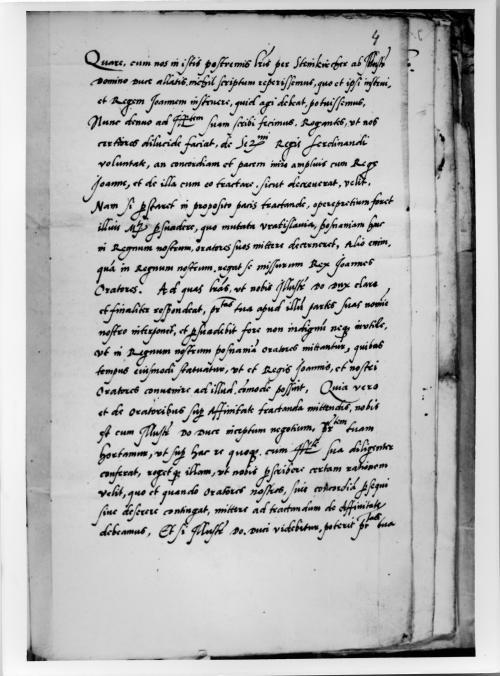 4
Quare, cum nos in istis postremis lr̃is per Steinkircher ab Illustri
Domino Duce allatis, nichil scriptum reperissemus, quo et ipsi instrui,
et Regem Joannem instruere, quid agi debeat, potuissemus,
Nunc denuo ad suam scribi fecimus. Rogantes, ut nos
certiores dilucide faciat, de Regis Ferdinandi
voluntate, an concordiam et pacem inire amplius cum Rege
Joanne, et de illa cum eo tractare, sicut decreverat, velit.
Nam si p̱staret in proposito pacis tractande, operepretium foret
illius p̱suadere, quo mutata Vratislavia, posnaniam hac
in Regnum nostrum, oratores suos mittere decerneret, Alio enim,
quã in Regnum nostrum, negat se missurum Rex Joannes
Oratores. Ad quas lr̃as, ut nobis Illustris Do Dux clare
et finaliter respondeat, pr̃tas tua apud illũ partes suas noĩe
nostro interponet, et p̱suadebit fore non indignũ neq̱ inutile,
ut in Regnum nostrum posnaniã oratores mittantur, quibus
tempus eiusmodi statuatur, ut et Regis Joannis, et nostri
Oratores convenire ad illud, cõmode possint. Quia vero
et de Oratoribus sup̱ Affinitate tractanda mittendis, nobis
est cum Illustri Do Duce inceptum negotium, pr̃tem tuam
hortamur, ut sup̱ hac re quoq̱ cum sua diligenter
conferat, rogetq̱ illam, ut nobis p̱scribere certam rationem
velit, quo et quando oratores nostros, sive concordiã p̱sequi
sive deserere contingat, mittere ad tractandum de Affinitate
debeamus, Et si Illustri Do. Duci videbitur, poterit pr̃tas tua